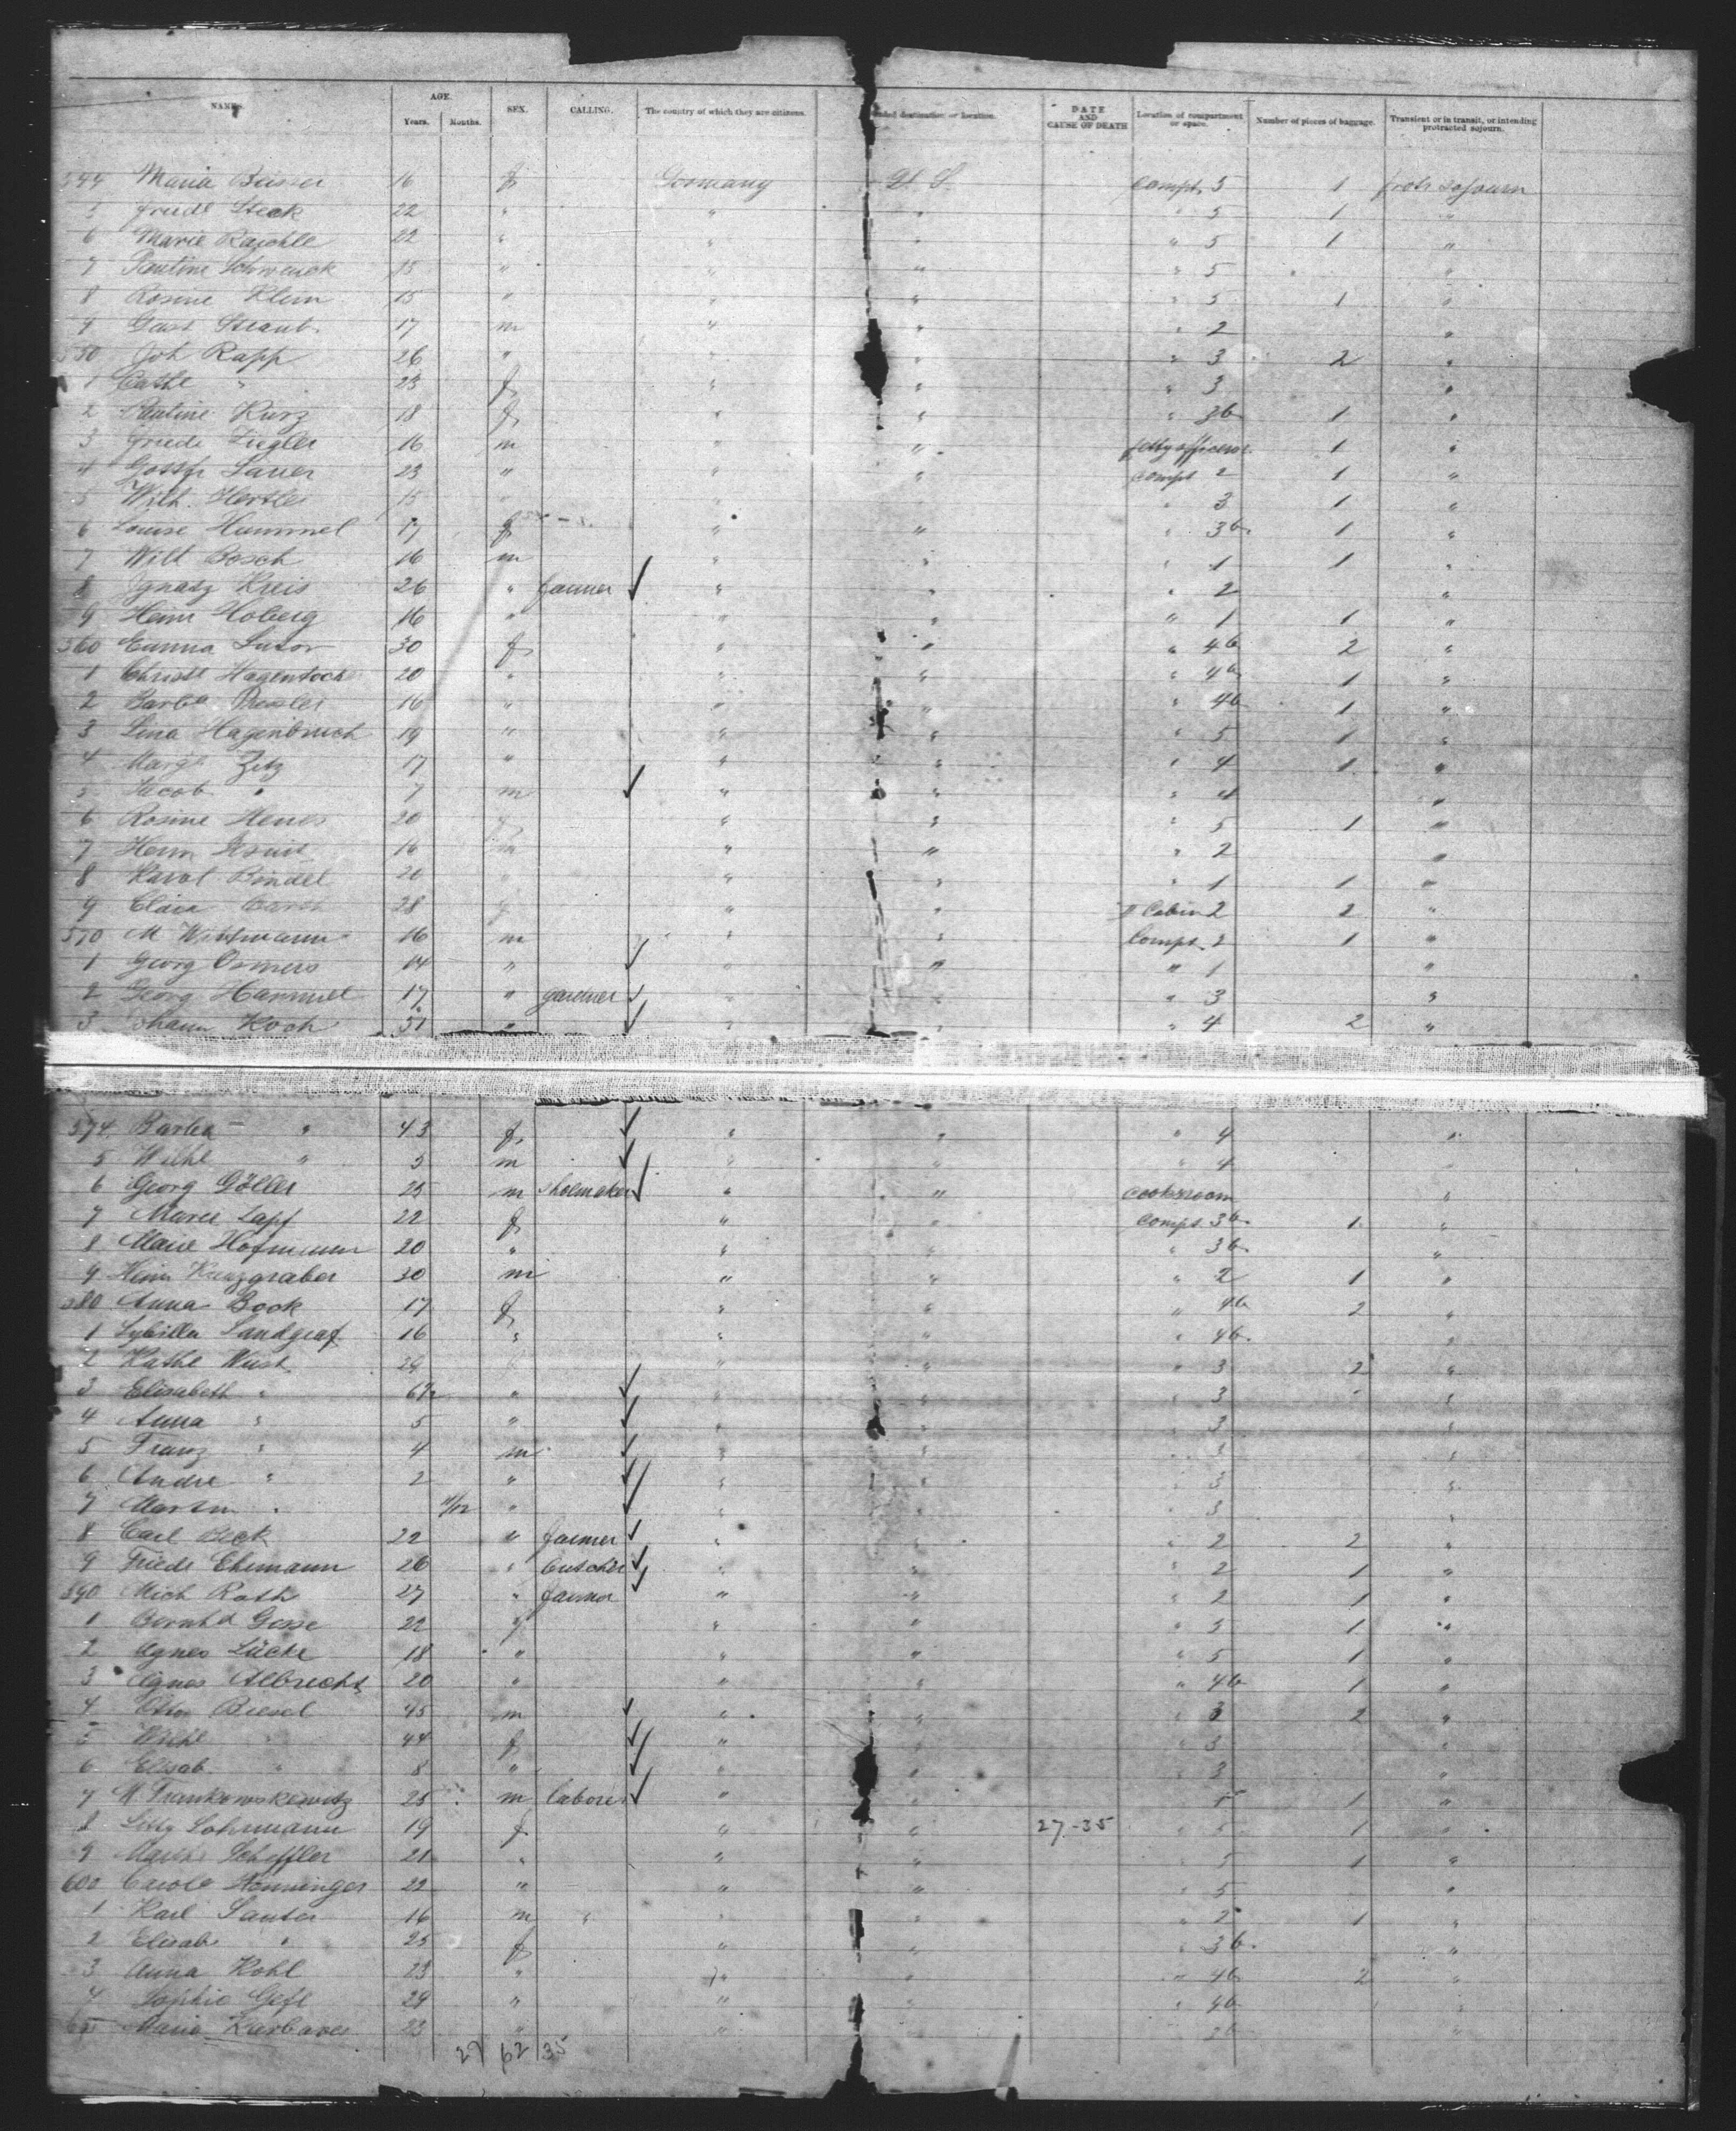 NAMES. AGE. SEX. CALLING. The country of which they are citizens. destination or location. DATE AND CAUSE OF DEATH Location of compartment or space. Number of pieces of baggage. Transient or in transit, or intending protracted sojourn.
Years. Months.
544 Maria Beisser 16 f Germany U. S. Compt. 5 1 protr sojourn
5 Friedr Steck 22 " " " " 5 1 "
6 Marie Raichle 22 " " " " 5 1 "
7 Pauline Schwenck 15 " " " " 5 "
8 Rosine Klein 15 " " " " 5 1 "
9 Straub 17 m " " " 2 "
550 Joh Rapp 26 " " " " 3 2 "
1 Cathe " 23 f " " " 3 "
2 Pauline Kurz 18 f " " " 3b 1 "
3 Friedr Ziegler 16 m " " petty officers 1 "
4 Sauer 23 " " " Compt 2 1 "
5 Wilh. Hertler 15 " " " " 3 1 "
6 Louise Hummel 17 f " " " 3b 1 "
7 Wilh Bosch 16 m " " " 1 1 "
8 Ignatz Kreis 26 " farmer " " " 2 "
9 Heinr Hoberg 16 " " " " 1 1 "
560 Emma Sutor 30 f " " " 4b 2 "
1 Christe 20 " " " " 4b 1 "
2 Barba 16 " " " " 4b 1 "
3 Lina Hagenbruch 19 " " " " 5 1 "
4 Margt Zitz 17 " " " " 4 1 "
5 Jacob " 7 m " " " 4 "
6 Rosine Henes 20 f " " " 5 1 "
7 Herm 16 m " " " 2 "
8 Karol Bindel 21 " " " " 1 1 "
9 Clara 28 f " " II Cabin 2 2 "
570 M 16 m " " Compt. 2 1 "
1 Georg Osmers 14 " " " " 1 "
2 Georg Hammel 17 " gardner " " " 3 "
3 Johann Koch 51 " " " " 4 2 "
574 Barba " 43 f " " " 4 "
5 Wilhe " 5 m " " " 4
6 Georg Göller 25 m shoemaker " " cooksroom "
7 Marie Lapf 22 f " " Compt. 3b 1 "
8 Marie Hofmann 20 " " " " 3b "
9 Heinr Kurzgraber 30 m " " " 2 1 "
580 Anna Bock 17 f " " " 4b 2 "
1 Sybilla Landgraf 16 " " " " 4b "
2 Kathe Wust 29 " " " 3 2 "
3 Elisabeth " 6½ " " " " 3 "
4 Anna " 5 " " " " 3 "
5 Franz " 4 m " " " 3 "
6 Andre " 2 " " " " 3 "
7 Martin " 11/12 " " " " 3 "
8 Carl Beck 22 " farmer " " " 2 2 "
9 Friedr Ehemann 26 " butcher " " " 2 1 "
590 Mich Roth 27 " farmer " " " 2 1 "
1 Bernhd Gosse 22 f " " " 5 1 "
2 Agnes Lücke 18 " " " " 5 1 "
3 Agnes Albrecht 20 " " " " 4b 1 "
4 Biesel 45 m " " " 3 2 "
5 Wilhe " 44 f " " " 3 "
6 Elisab. " 8 " " " " 3 "
7 M. Frankowskewitz 25 m laborer " " 1 1 "
8 Sitty Lohrmann 19 f " " 27-35 " 5 1 "
9 Marthe Scheffler 21 " " " " 5 1 "
600 Carole Henninger 22 " " " " 5 "
1 Karl Sauter 16 m " " " " 2 1 "
2 Elisab " 25 f " " " 3b "
3 Anna Kohl 23 " " " " 4b 2 "
4 Sophie 29 " " " " 4b
605 Maria 23 " " "
27 62 35